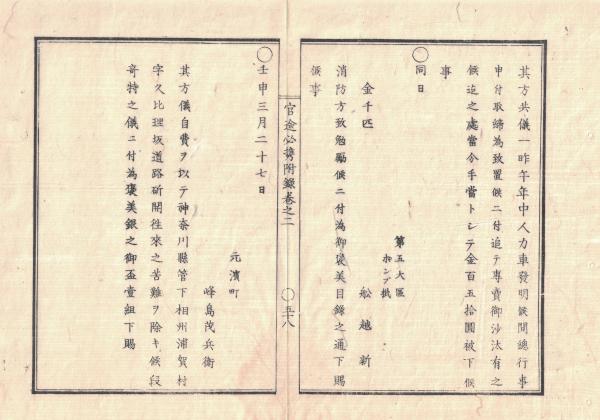 其方共儀一昨午年中人力車發明候間總行事
申付取締為致置候ニ付追テ專賣御沙汰有之
候迄之處當今手當トシテ金百五拾圓被下候
事
〇同日
第五大區
ホンプ掛
舩越新
金千匹
消防方致勉勵候ニ付為御褒美目錄之通下賜
候事
官途必携附錄卷之二
〇五十八
〇壬申三月二十七日
元濱町
峰島茂兵衛
其方儀自費ヲ以テ神奈川縣管下相州浦賀村
字久比理坂道路斫開往來之苦難ヲ除キ候段
奇特之儀ニ付為褒美銀之御盃壹組下賜